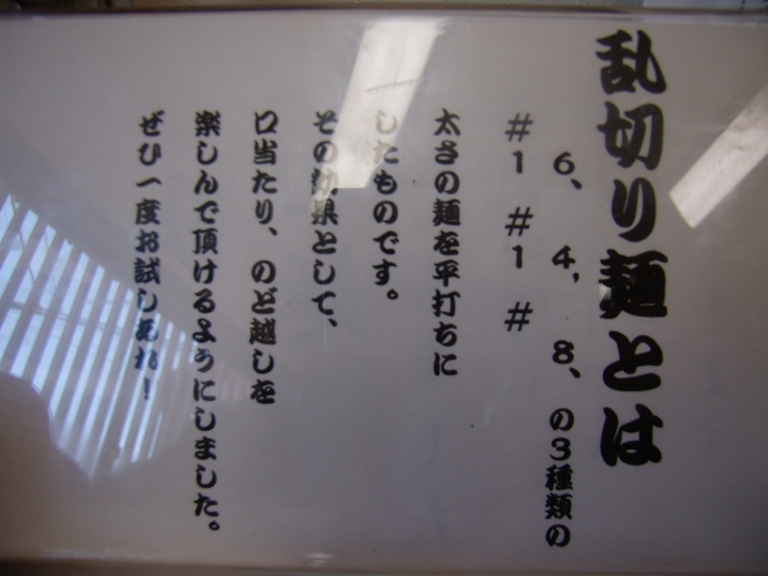 乱切り麺とは
6、4、8、の3種類の
#1 #1 #
太さの麺を平打ちに
したものです。
その効果として、
口当たり、のど越しを
楽しんで頂けるようにしました。
ぜひ一度お試しあれ！